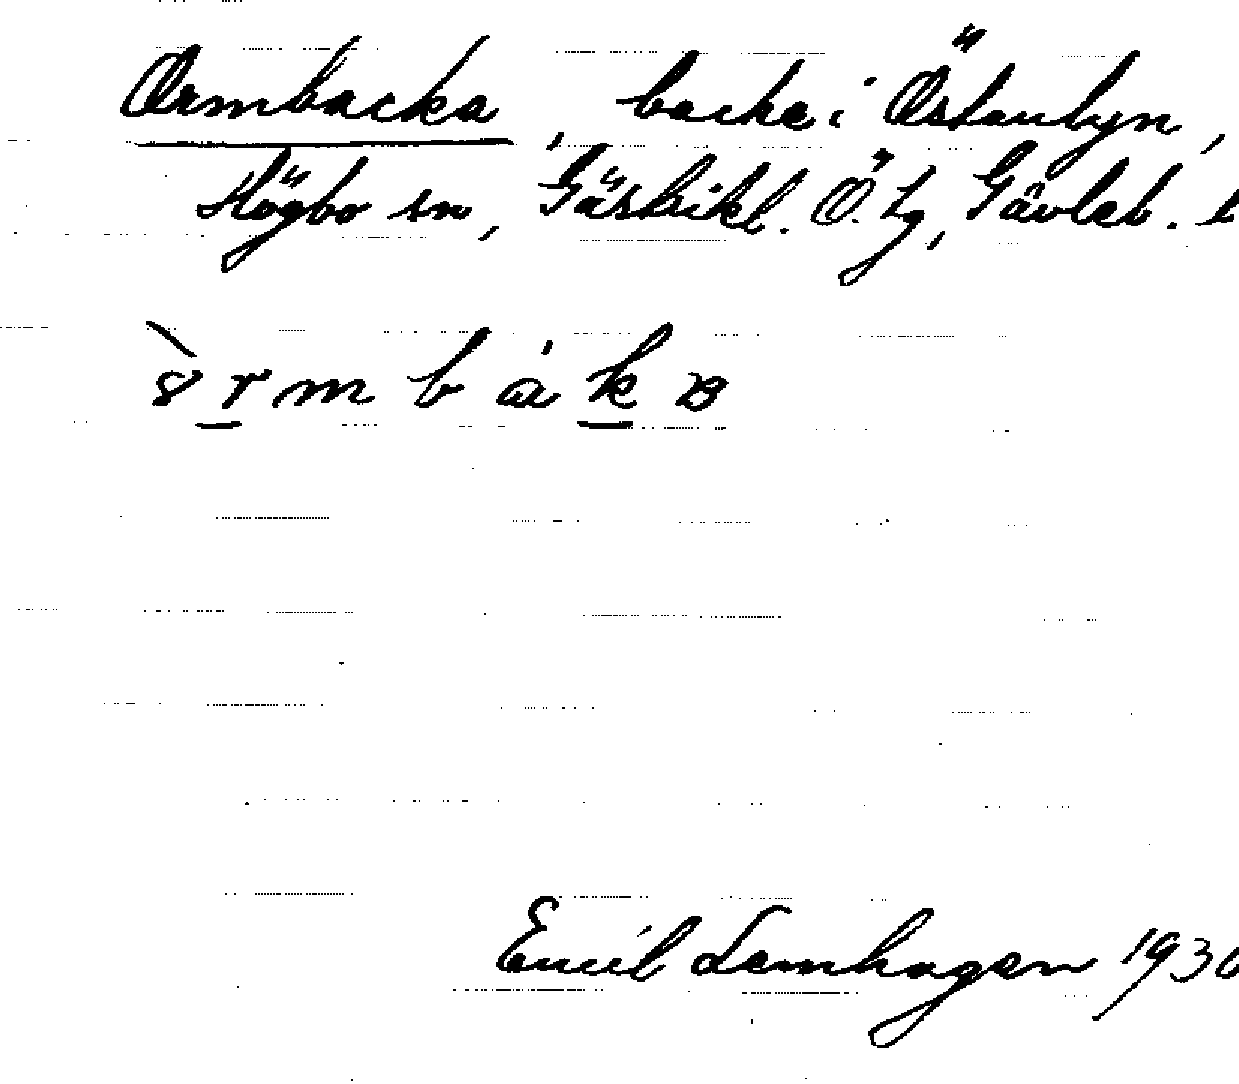 Ormbacka, backe i Östanbyn,
Högbo sn, Gästrikl. Ö. tg, Gävleb. l
Emil Lemhagen 1930